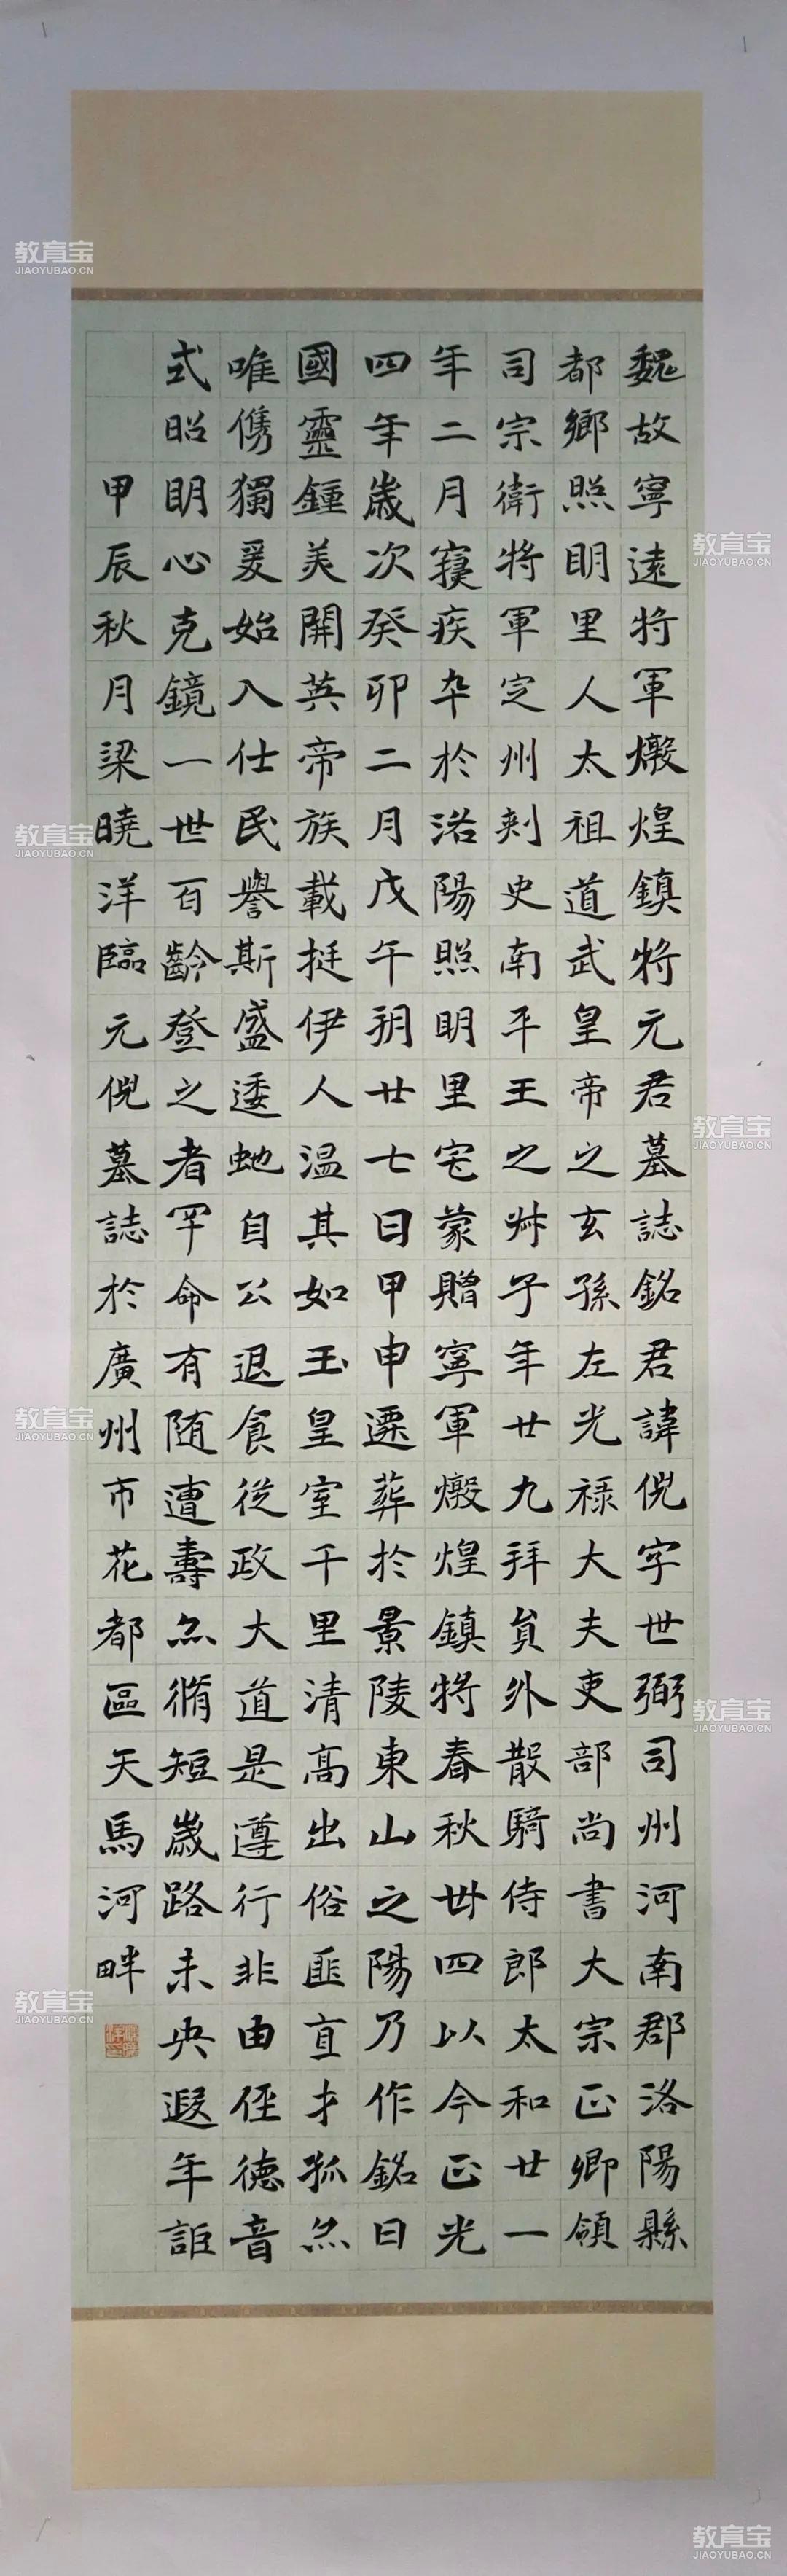 魏故寧遠将軍燉煌鎮将元君墓誌銘君諱倪字世弼司州河南郡洛陽縣
都鄉照明里人太祖道武皇帝之玄孫左光禄大夫吏部尚書大宗正卿領
司宗衛将軍定州刾史南平王之艸子年廿九拜貟外散騎侍郎太和廿一
年二月寢疾卒於洛陽照明里宅蒙贈寧軍燉煌鎮将春秋丗四以今正光
四年歲次癸卯二月戊午朔廿七日甲申遷葬於景陵東山之陽乃作銘曰
國靈鍾美開英帝族載挺伊人温其如玉皇室千里清高出俗匪直才孤尒
唯儁獨爰始入仕民譽斯盛逶虵自公退食從政大道是遵行非由徑德音
式昭明心克鏡一世百齡登之者罕命有随遭壽尒脩短歲路未央遐年詎
甲辰秋月梁曉洋臨元倪墓誌於廣州市花都區天馬河畔
教育宝
JIAOYUBAO.CN
教育宝
JIAOYUBAO.CN
教育宝
JIAOYUBAO.CN
教育宝
JIAOYUBAO.CN
教育宝
JIAOYUBAO.CN
教育宝
JIAOYUBAO.CN
教育宝
JIAOYUBAO.CN
教育宝
JIAOYUBAO.CN